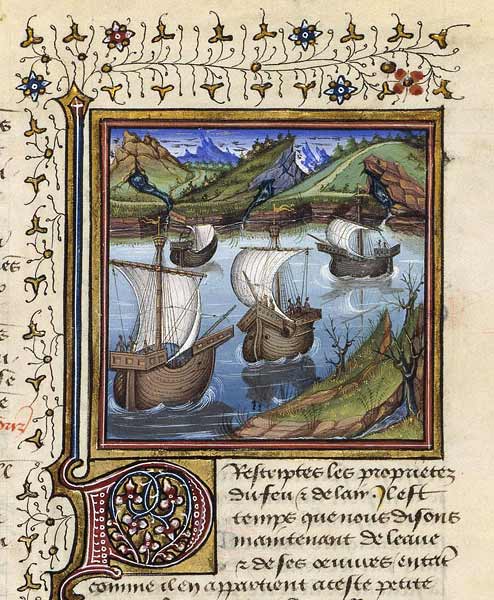 DEscriptes les proprietez
du feu & de lair. Il est
temps que nous disons
maintenant de leaue
& de ses oeuvres entāt
comme il en appartient a ceste petite